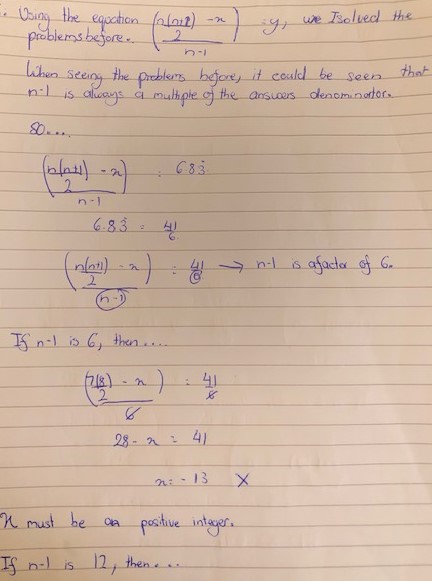 . Using the equation (n(n+1)/2 - x) / n-1 = y, we solved the
problems before.
When seeing the problems before, it could be seen that
n-1 is always a multiple of the answers denominator.
So....
(n(n+1)/2 - x) / n-1 = 6.83̇
6.83̇ = 41/6
(n(n+1)/2 - x) / n-1 = 41/6 → n-1 is a factor of 6.
If n-1 is 6, then....
(7(8)/2 - x) / 6 = 41/6
28 - x = 41
x = -13 X
x must be a positive integer.
If n-1 is 12, then....